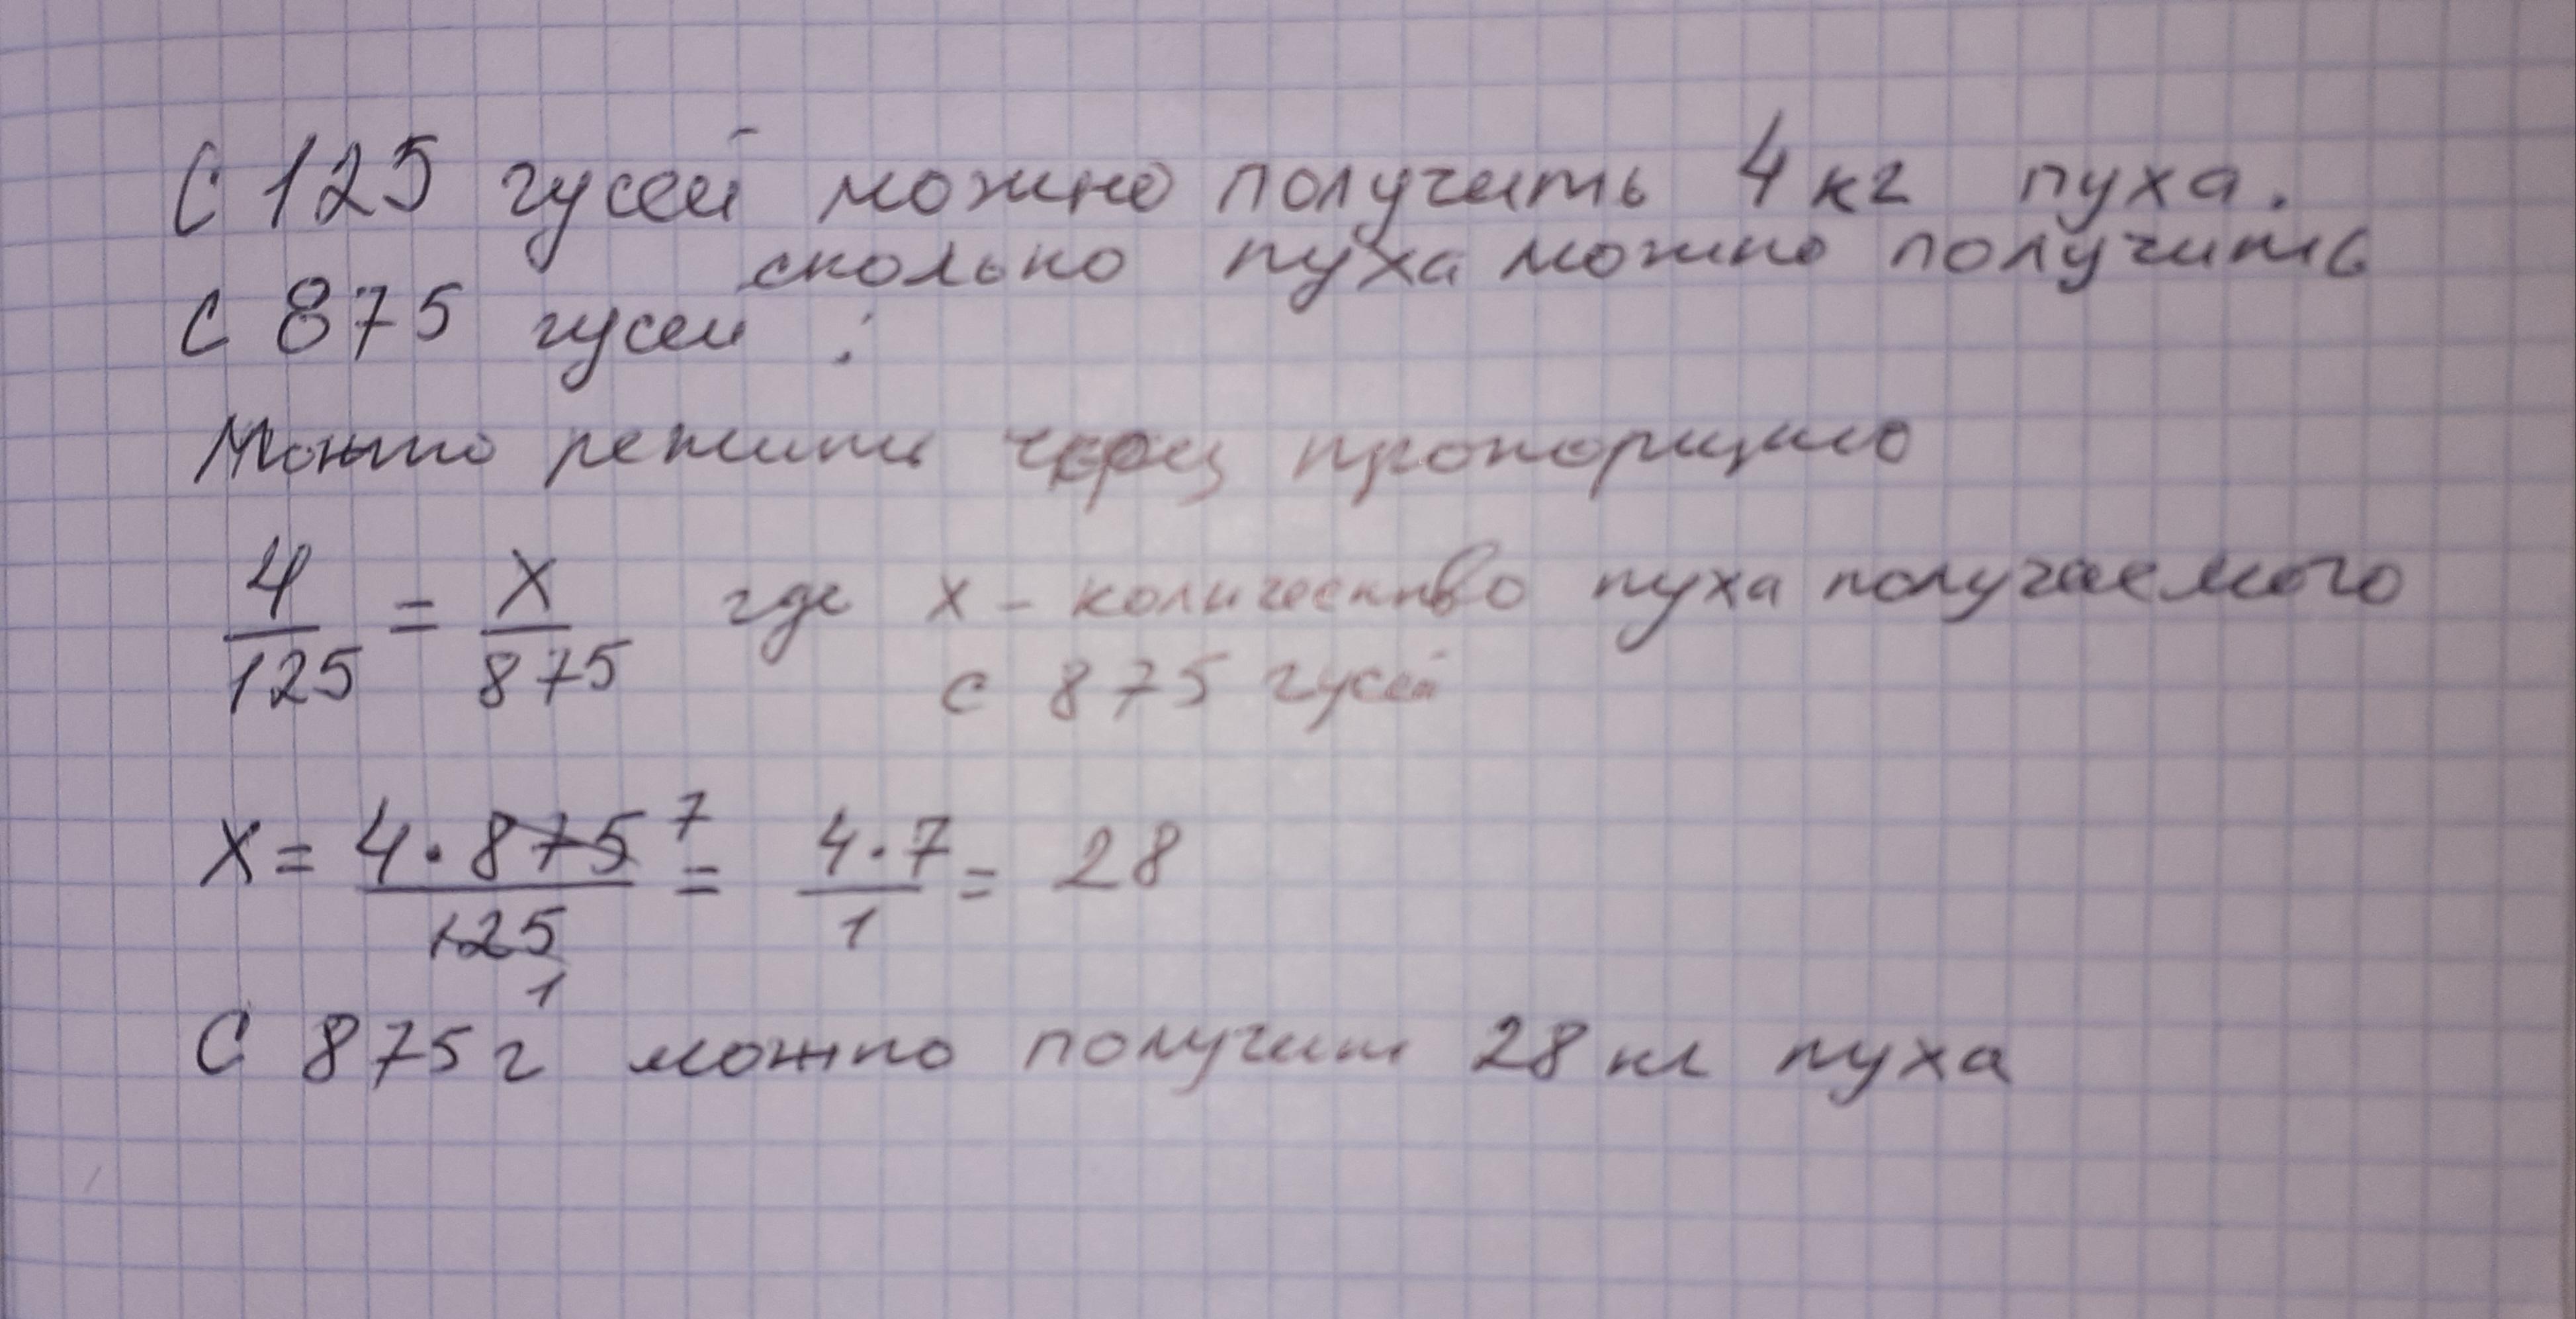 С 125 гусей можно получить 4 кг пуха.
сколько пуха можно получить
с 875 гусей
Можно решить через пропорцию
4/125 = x/875 где x - количество пуха получаемого
с 875 гусей
x = 4·875 7 / 125 1 = 4·7/1 = 28
С 875 г можно получит 28 кг пуха